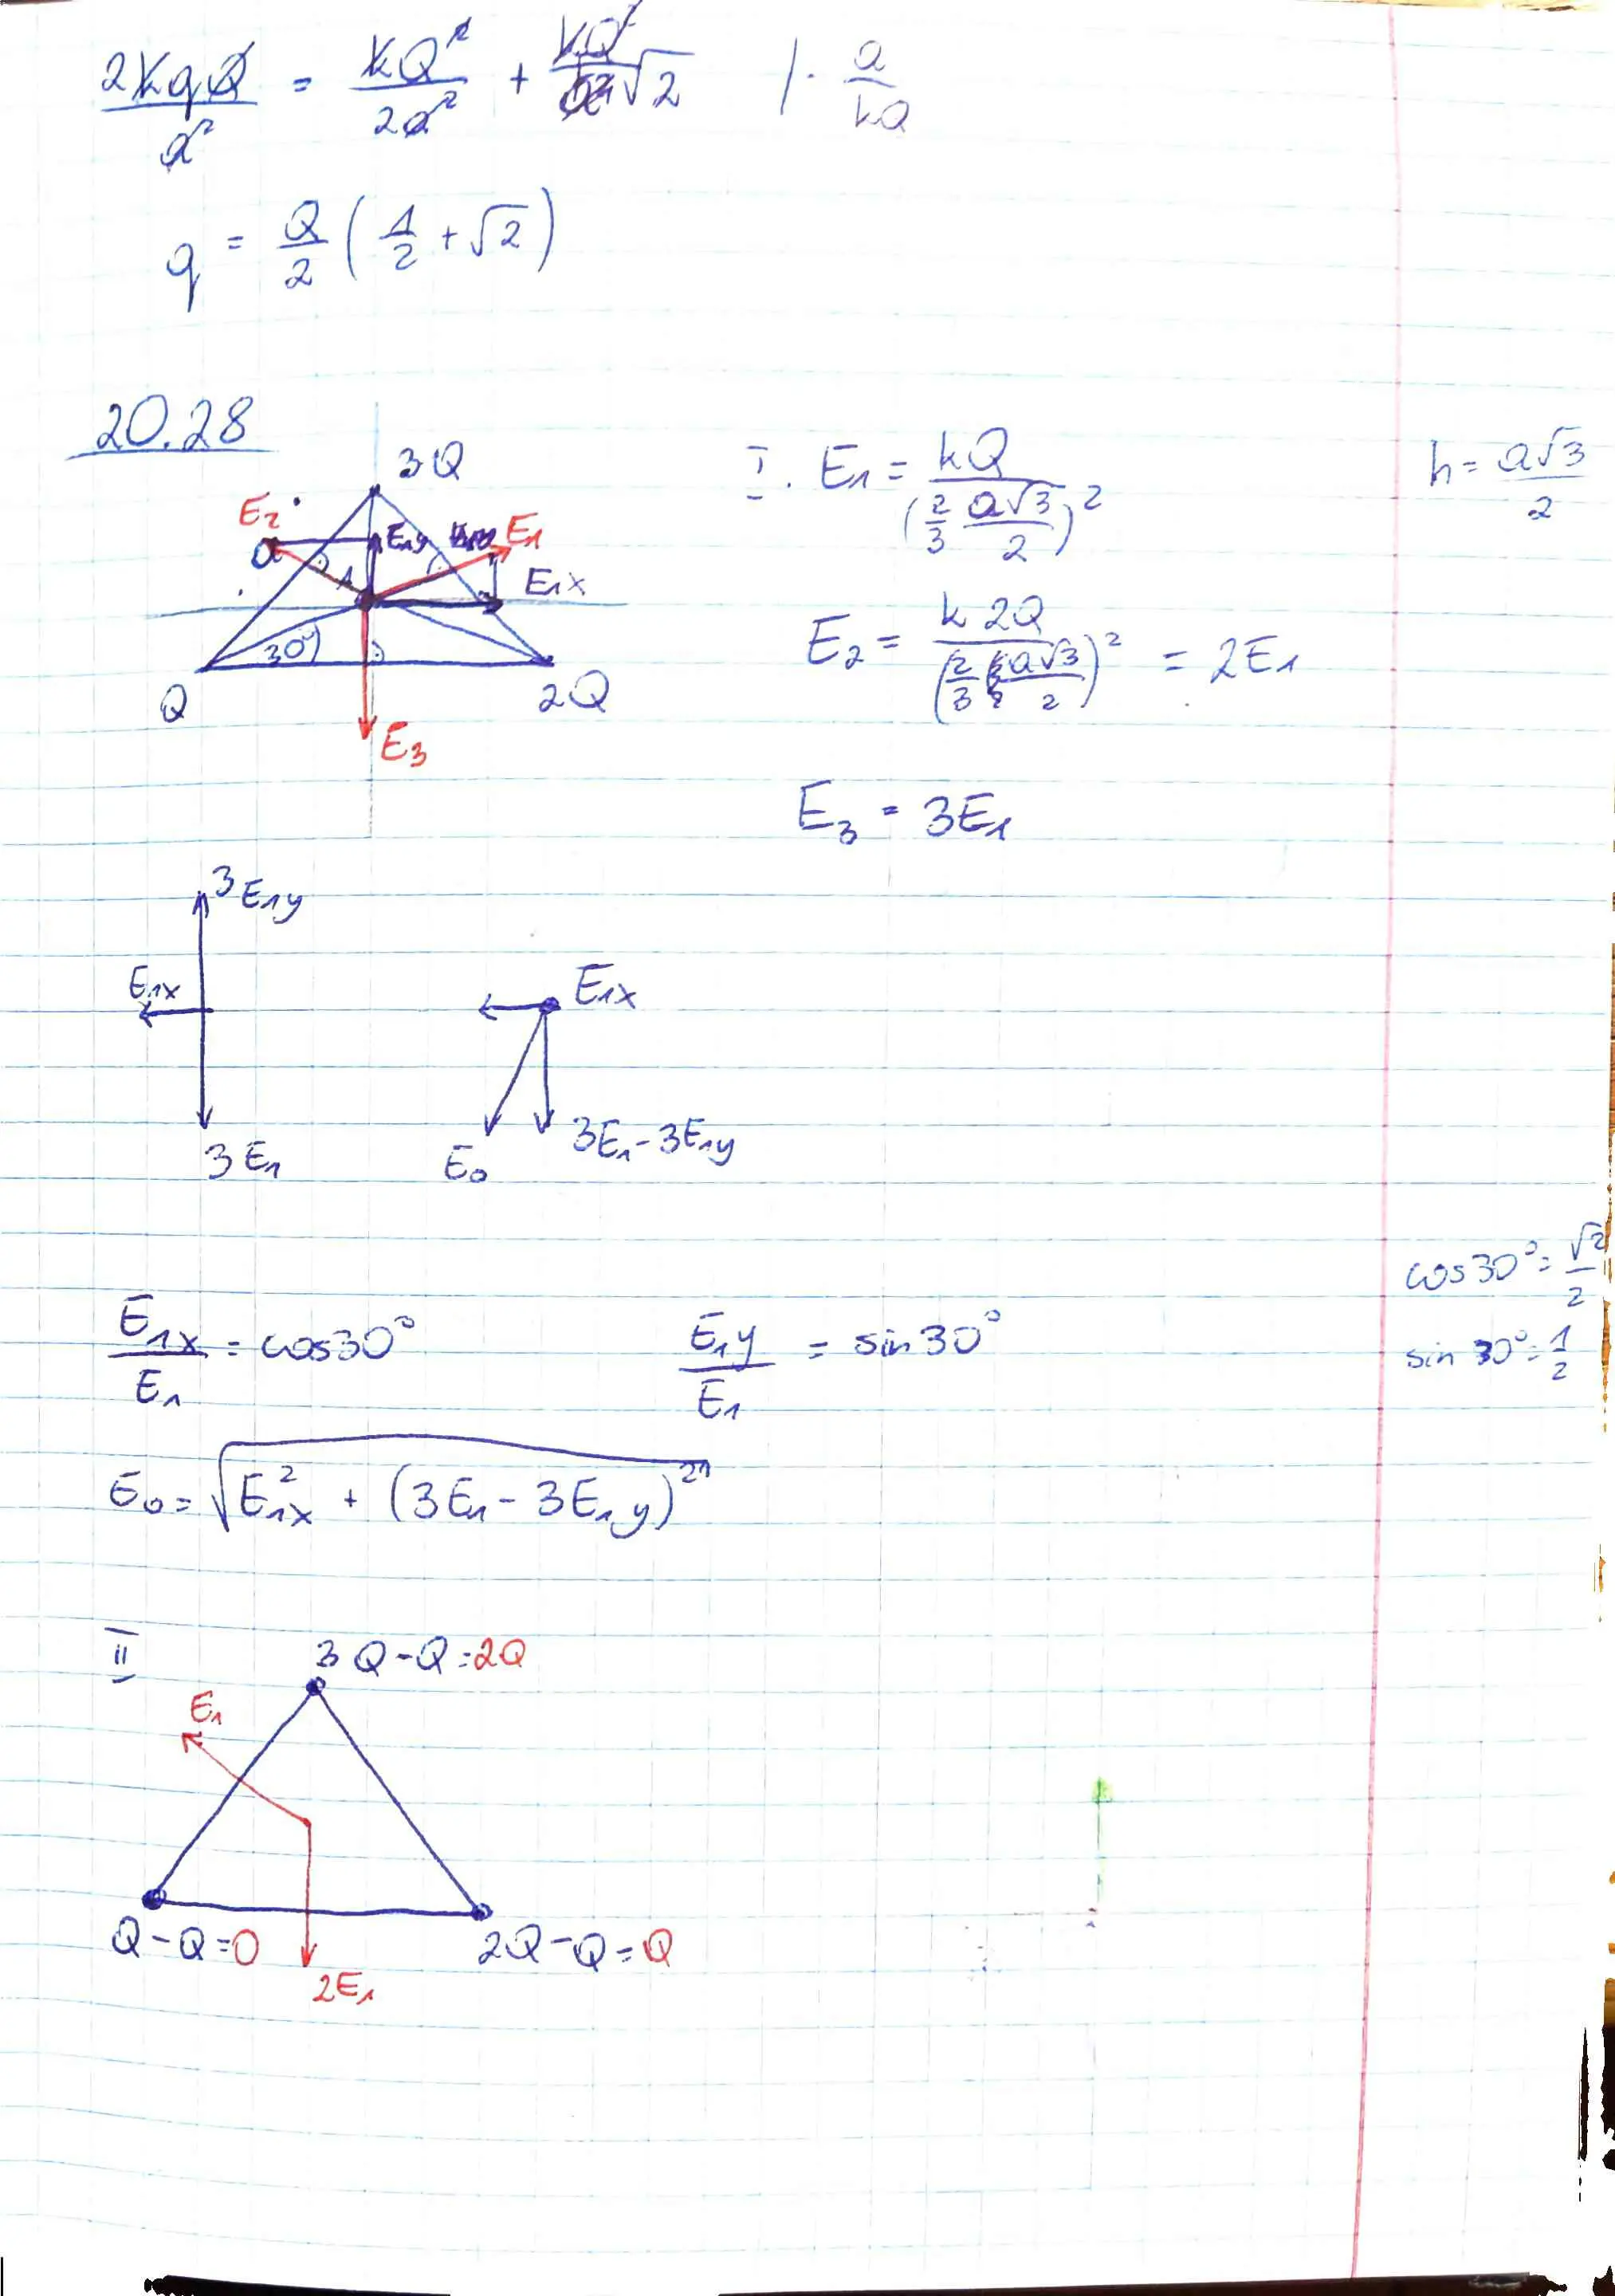 2kqQ/a² = kQ²/2a² + kQ²/a² √2 /· a/kQ
q = Q/2 (1/2 + √2)
20.28
3Q
E₂
E₁y
E₁
E₁x
30°
Q
2Q
E₃
I. E₁ = kQ/(2/3 a√3/2)²
h = a√3/2
E₂ = k 2Q/(2/3 a√3/2)² = 2E₁
E₃ = 3E₁
3E₁y
E₁x
3E₁
E₁x
E₀
3E₁-3E₁y
cos30° = √2/2
sin 30° = 1/2
E₁x/E₁ = cos30°
E₁y/E₁ = sin30°
E₀ = √(E₁x² + (3E₁ - 3E₁y)²)
II
3Q-Q=2Q
E₁
Q-Q=0
2Q-Q=Q
2E₁